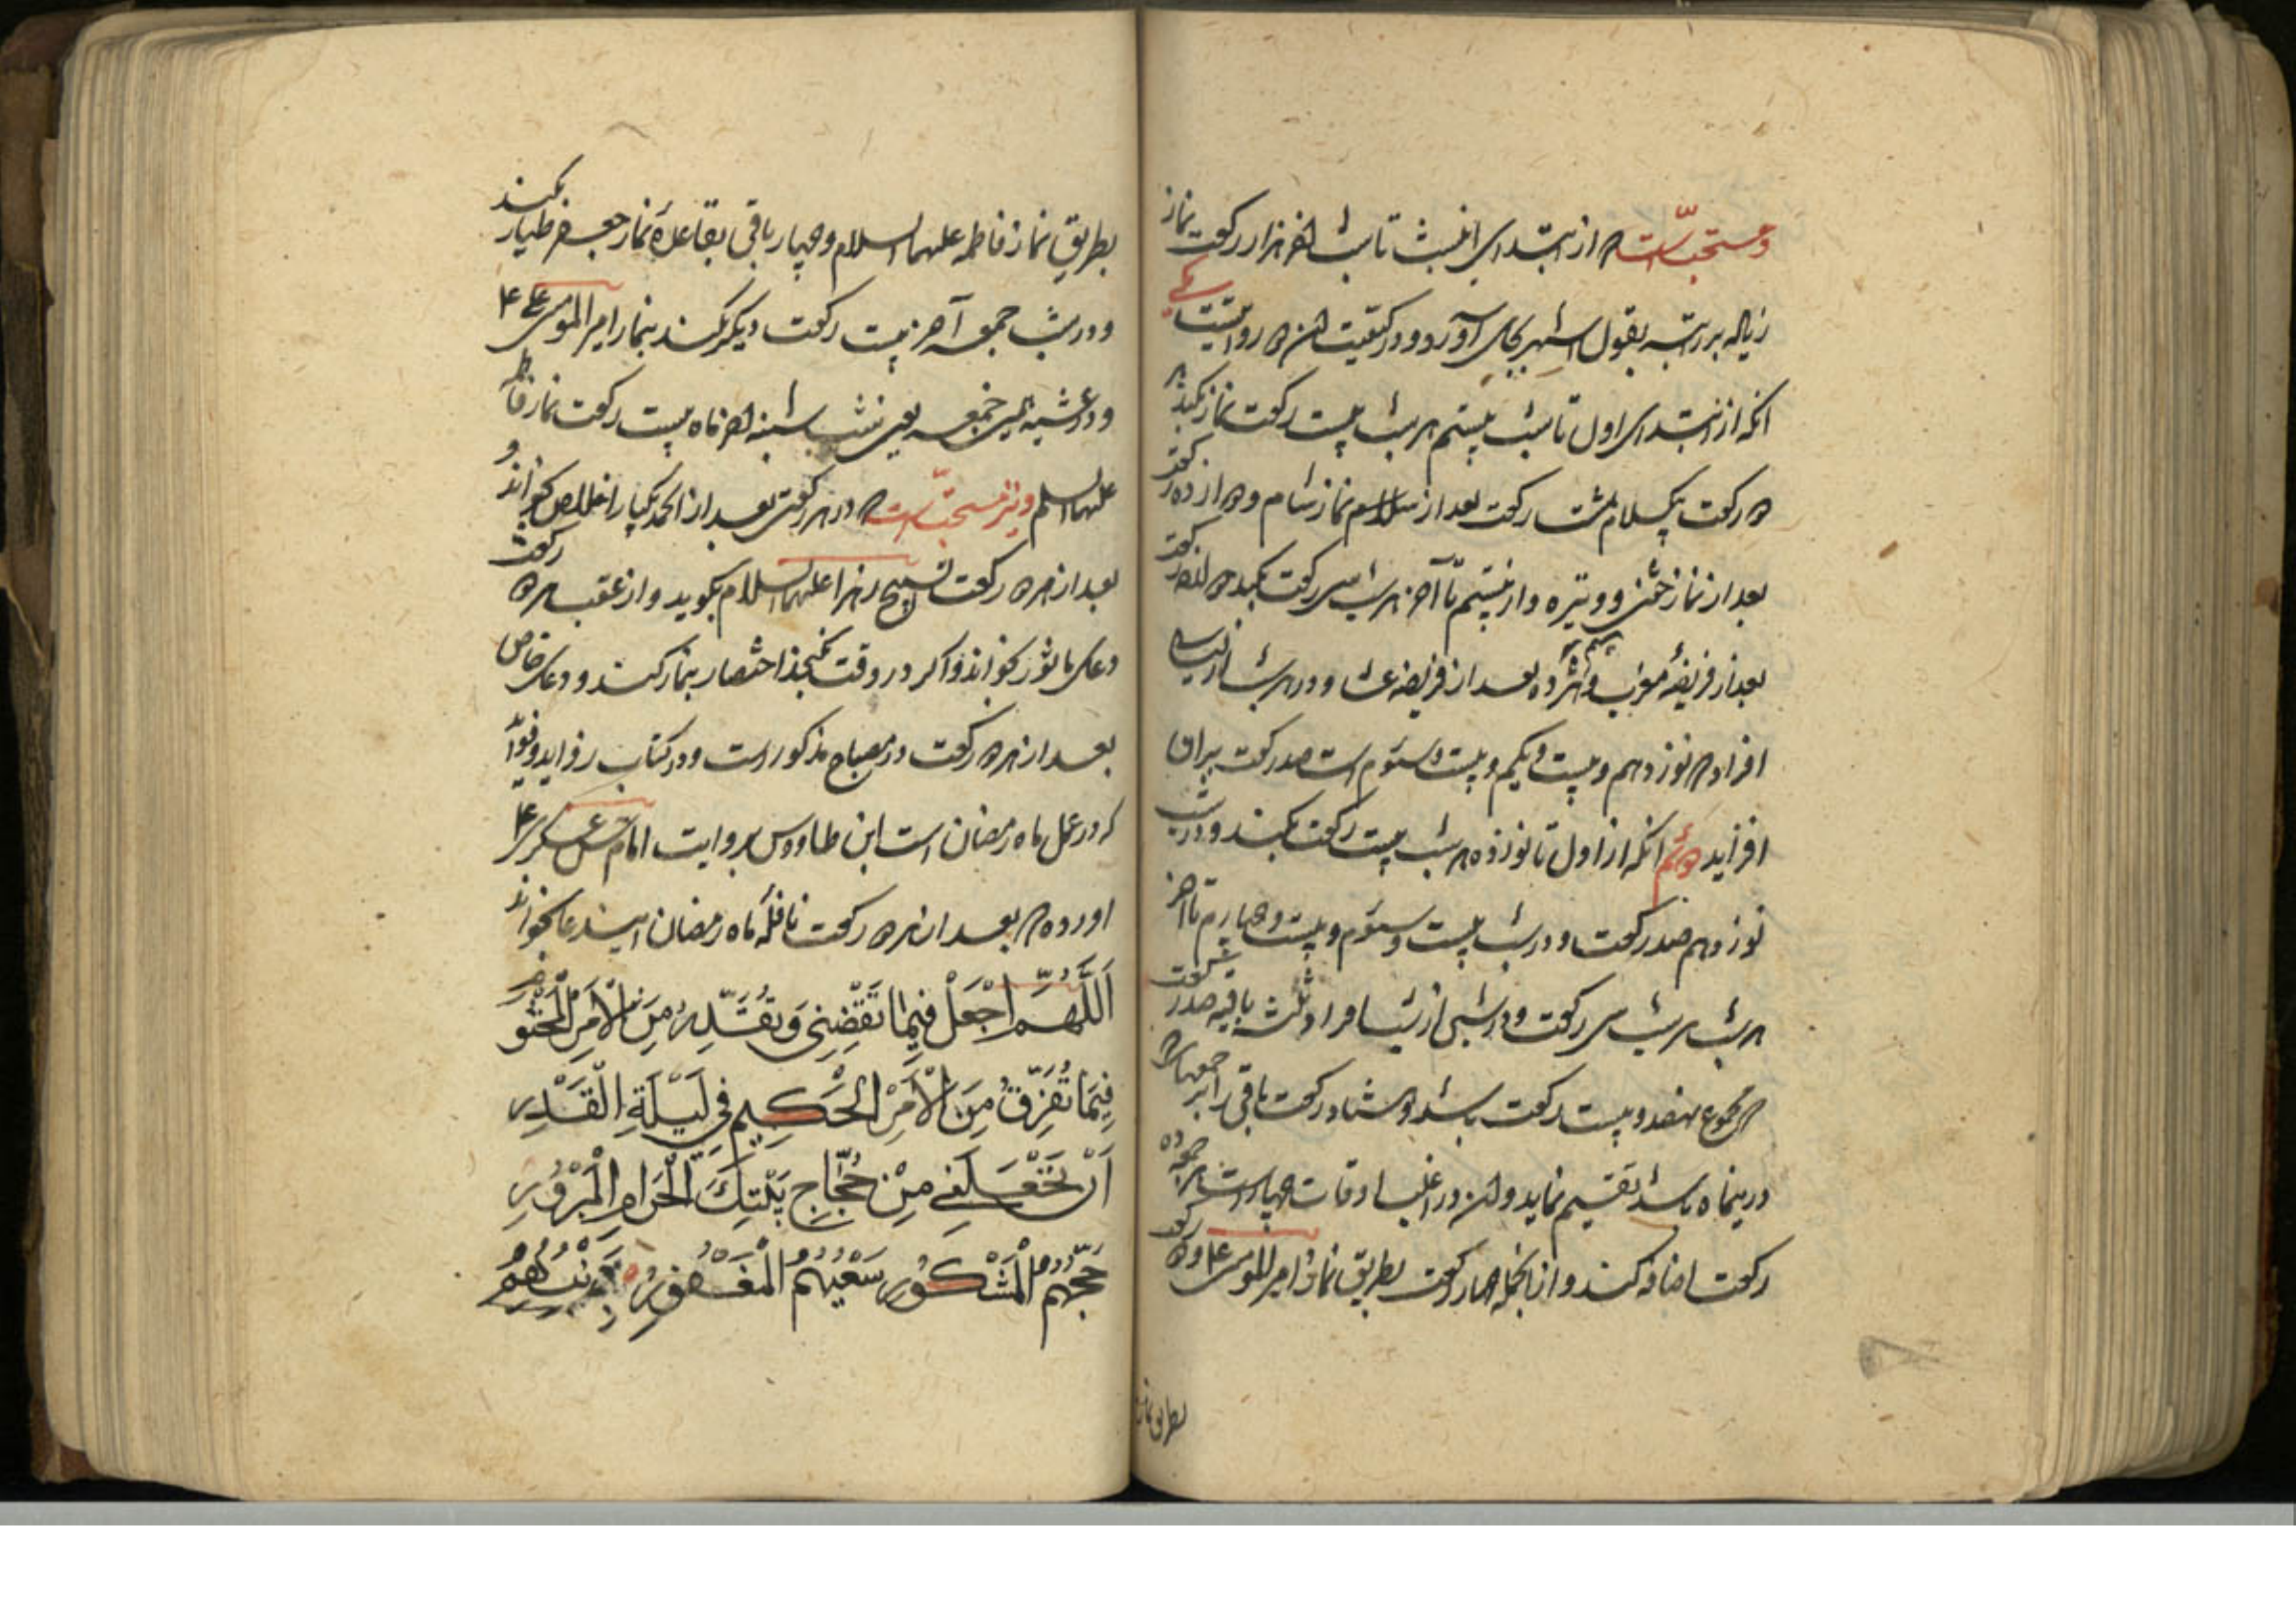 و مستحبّ است که از ابتدای این شب تا شب آخر هزار رکعت نماز
زیاده بر راتبه بقول اشهر بجای آورد و در کیفیت آن دو روایتست یکی
آنکه از ابتدای اول تا شب بیستم هر شب بیست رکعت نماز بکند هر
دو رکعت بیکسلام هشت رکعت بعد از نماز شام و دوازده رکعت
بعد از نماز خفتن و وتیره و از بیستم تا آخر هر شب سی رکعت بکند رکعت
بعد از فریضهٔ مغرب و بعد از فریضهٔ عشا و در هر شب از لیالی
افراد که نوزدهم و بیست و یکم و بیست و سیوم است صد رکعت بر آن
افزاید دوم آنکه از اول تا نوزده هر شب بیست رکعت بکند و در شب
نوزدهم صد رکعت و در شب بیست و سیوم و بیست و چهارم تا آخر
هر شب سی رکعت و در شبی از شبها افراد ثلثه باقیه صد رکعت
که مجموع هفصد و بیست رکعت باشد و هشتاد رکعت باقی را بر جمعهائی که
درینماه باشد تقسیم نماید و در اغلب اوقات چهار است هر جمعه ده
رکعت اضافه کند و از آنجمله چهار رکعت بطریق نماز امیرالمومنین ع و دو رکعت
بطریق نماز
بطریق نماز فاطمه علیها السلام و چهار باقی بقاعدهٔ نماز جعفر طیار بکند
و در شب جمعه آخر بیست رکعت دیگر بکند بنماز امیر المومنین ع
و در عشیهٔ جمعه یعنی شب شنبه آخر ماه بیست رکعت نماز فاطمه
علیها السلم و نیز مستحبّ است که در هر رکعتی بعد از الحمد یکبار اخلاص بخواند و
بعد از هر دو رکعت تسبیح زهرا علیها السلام بگوید و از عقب هر دو رکعت
دعای ماثور بخواند و اگر در وقت نگنجد اختصار بنماز کند و دعای خاص
بعد از هر دو رکعت در مصباح مذکور است و در کتاب
که در عمل ماه رمضان است ابن طاووس بروایت امام حسن عسکری ع
اورده که بعد از هر دو رکعت نافلهٔ ماه رمضان این دعا بخواند
اَللّٰهُمَّ اجْعَلْ فِيمَا تَقْضِي وَتُقَدِّرُ مِنَ الْأَمْرِ الْمَحْتُومِ
فِيمَا تُفَرِّقُ مِنَ الْأَمْرِ الْحَكِيمِ فِي لَيْلَةِ الْقَدْرِ
اَنْ تَجْعَلَنِي مِنْ حُجَّاجِ بَيْتِكَ الْحَرَامِ الْمَبْرُورِ
حَجُّهُمُ الْمَشْكُورِ سَعْيُهُمُ الْمَغْفُورِ ذُنُوبُهُمْ